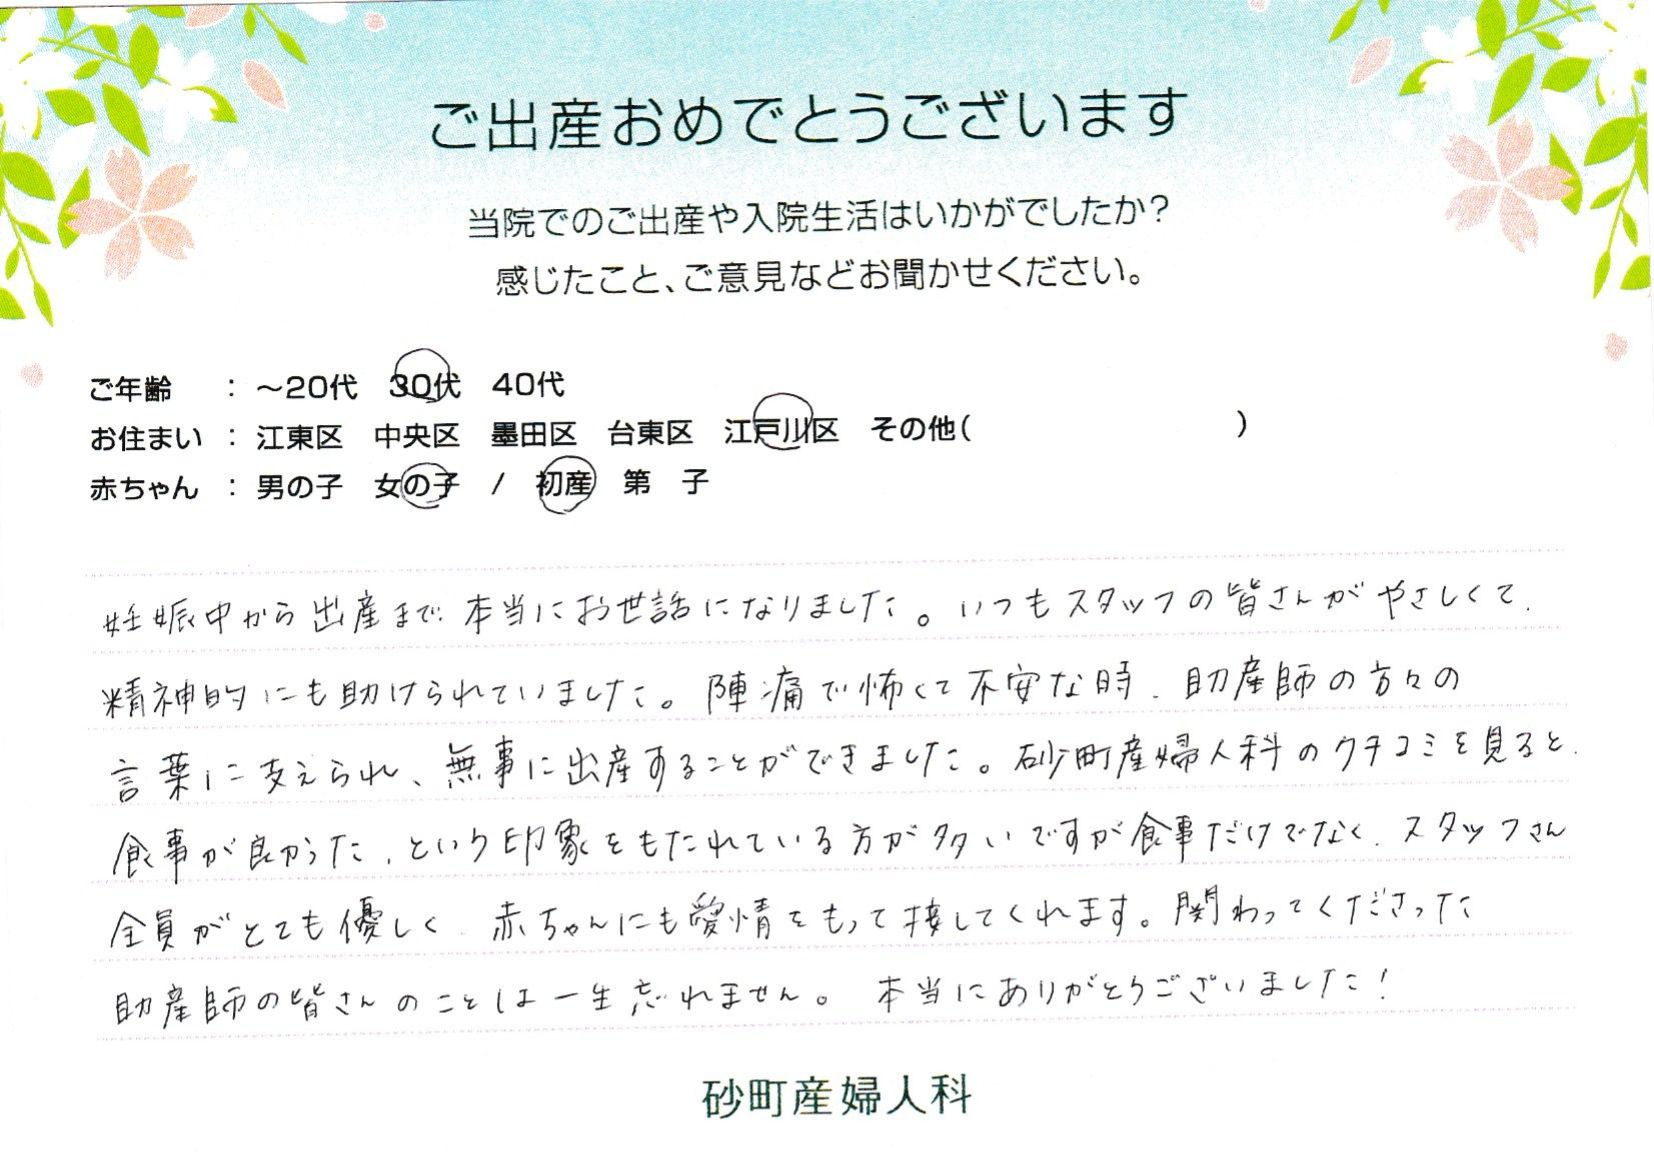 ご出産おめでとうございます
当院でのご出産や入院生活はいかがでしたか?
感じたこと、ご意見などお聞かせください。
ご年齢 : ～20代 30代 40代
お住まい : 江東区 中央区 墨田区 台東区 江戸川区 その他( )
赤ちゃん : 男の子 女の子 / 初産 第 子
妊娠中から出産まで、本当にお世話になりました。いつもスタッフの皆さんがやさしくて、
精神的にも助けられていました。陣痛で怖くて不安な時、助産師の方々の
言葉に支えられ、無事に出産することができました。砂町産婦人科のクチコミを見ると、
食事が良かった、という印象をもたれている方が多いですが食事だけでなく、スタッフさん
全員がとても優しく、赤ちゃんにも愛情をもって接してくれます。関わってくださった
助産師の皆さんのことは一生忘れません。 本当にありがとうございました!
砂町産婦人科